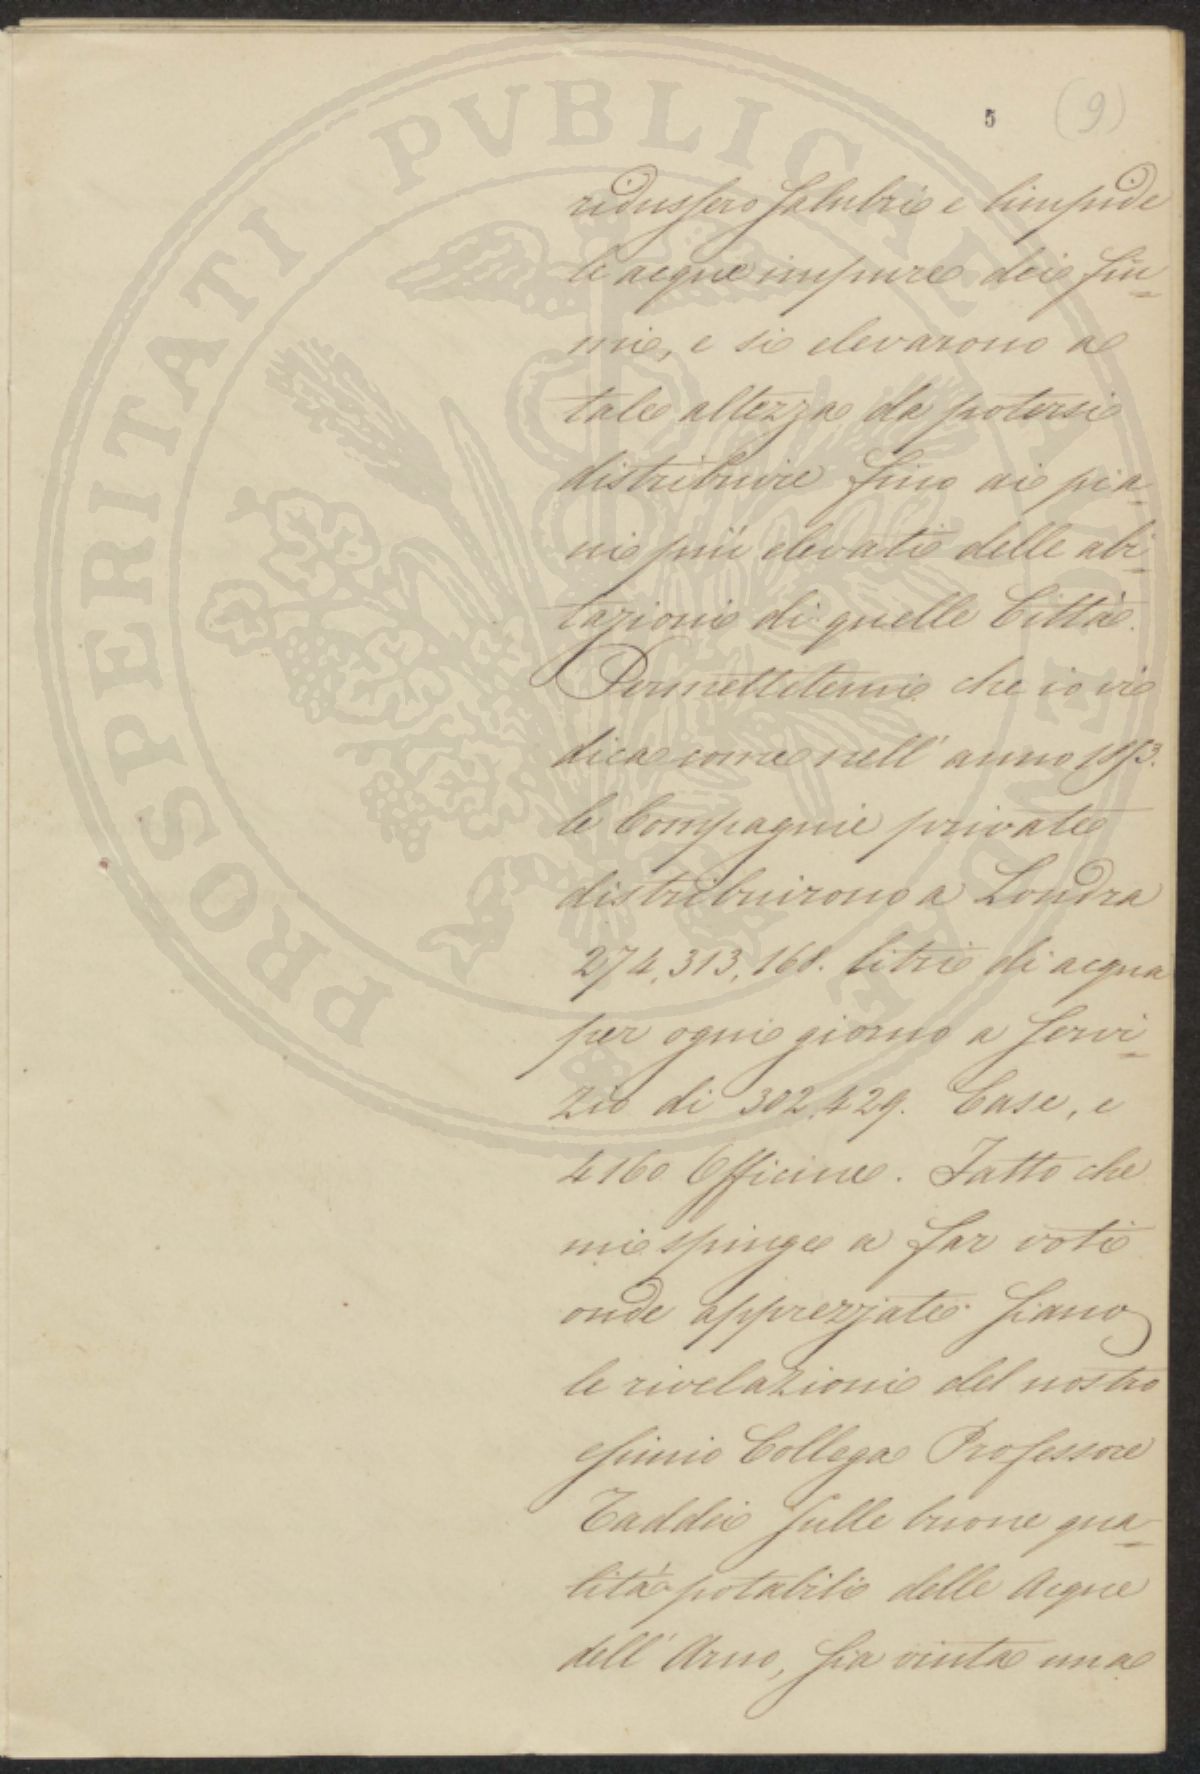 5 (9)
ridussero salubri e limpide
le acque impure dei fiu=
mi, e si elevarono a
tale altezza da potersi
distribuire fino ai pia=
ni più elevati delle abi=
tazioni di quelle Città.
Permettetemi che io vi
dica come nell' anno 1853.
le Compagnie private
distribuirono a Londra
274,313,168. litri di acqua
per ogni giorno a servi=
zio di 302,429. Case, e
4160 Officine. Fatto che
mi spinge a far voti
onde apprezzate siano
le rivelazioni del nostro
esimio Collega Professore
Taddei sulle buone qua=
lità potabili delle Acque
dell' Arno, sia vinta una
PROSPERITATI PVBLICAE AVGENDAE